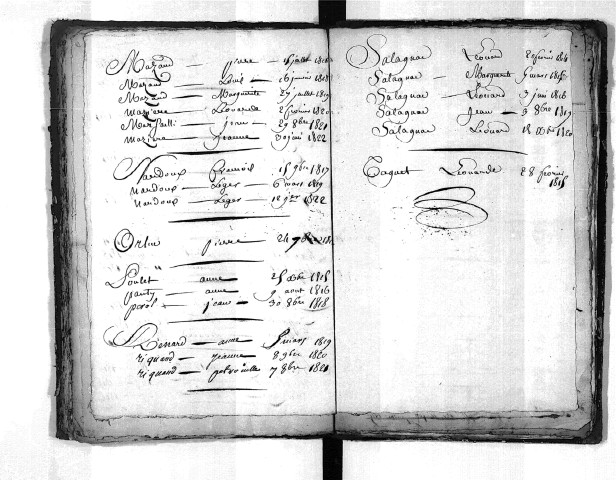 Mazaud — pierre — juillet 1818
Mazaud — Louis — 16 janvier 1818
Mazaud — Marguerite — 27 juillet 1819
maziere Léonarde 2 fevrier 1820
jean — 29 8bre 1821
maziere — jeanne — 30 juin 1822
Nardoux — 15 9bre 1817
nardoux — Leger — 6 mars 1819
nardoux — Léger — 12 9bre 1822
Orliu pierre — 24
Poulet anne — 25 1815
party — anne — 9 aout 1816
porol — jean — 30 8bre 1818
Renard — anne mars 1819
riquand — jeanne — 8 9bre 1820
riquand — petronille — 7 8bre 1821
Salagnac Léonard 2 fevrier
Salagnac — Marguerite 9 mars
Salagnac Léonard 3 juin 1816
Salagnac — Jean — 3 8bre 1819
Salagnac Léonard 18 1820
Taguet Léonarde 28 fevrier
1815